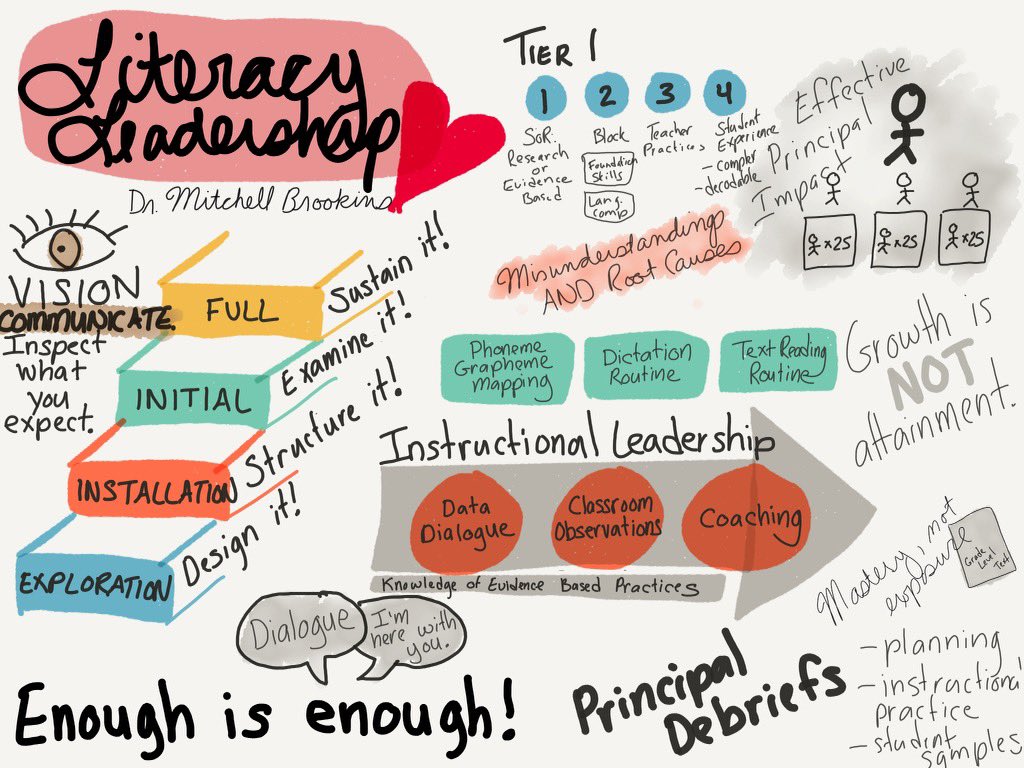 Literacy
Leadership
Dr. Mitchell Brookins
VISION
COMMUNICATE.
Inspect
what
you
expect.
FULL
Sustain it!
INITIAL
Examine it!
INSTALLATION
Structure it!
EXPLORATION
Design it!
TIER 1
1
SoR.
Research
or
Evidence
Based
2
Block
Foundation
Skills
Lang.
Comp
3
Teacher
Practices
4
Student
Experience
- complex
- decodable
Effective
Principal
Impact
x25
x25
x25
Misunderstandings
AND Root Causes
Phoneme
Grapheme
mapping
Dictation
Routine
Text Reading
Routine
Growth is
NOT
attainment.
Instructional Leadership
Data
Dialogue
Classroom
Observations
Coaching
Knowledge of Evidence Based Practices
Mastery, not
exposure
Grade
Level
Text
Dialogue
I'm
here with
you.
Enough is enough!
Principal
Debriefs
- planning
- instructional
practice
- student
samples